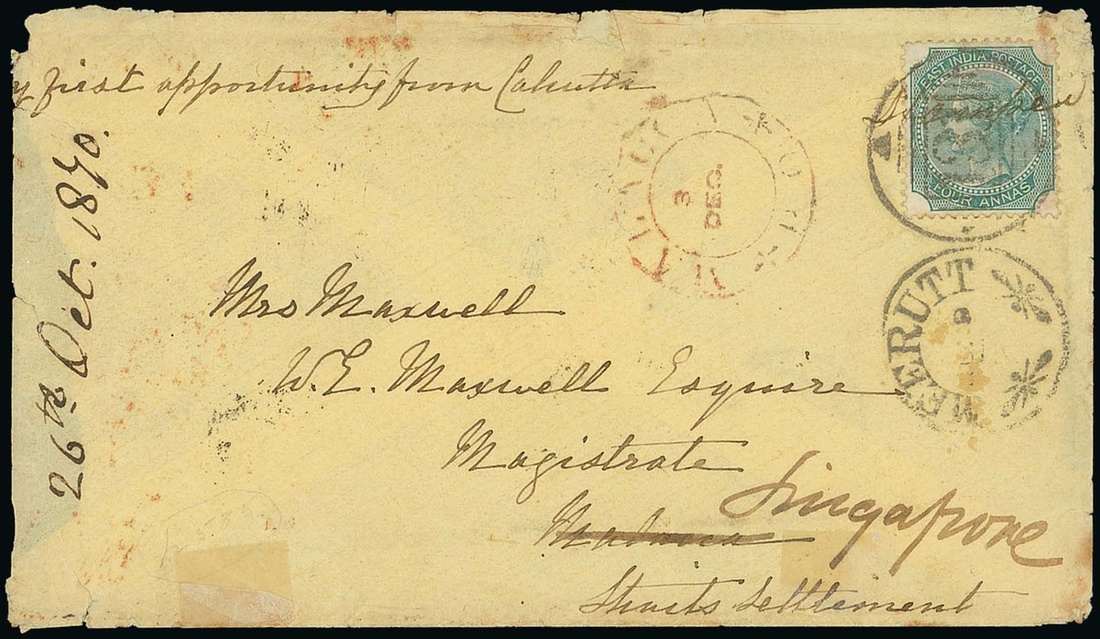 first opportunity from Calcutta
EAST INDIA POSTAGE
FOUR ANNAS
26th Oct. 1870.
3
DEC.
MEERUTT
Mrs Maxwell
W.E. Maxwell Esquire
Magistrate
Malacca
Singapore
Straits Settlement